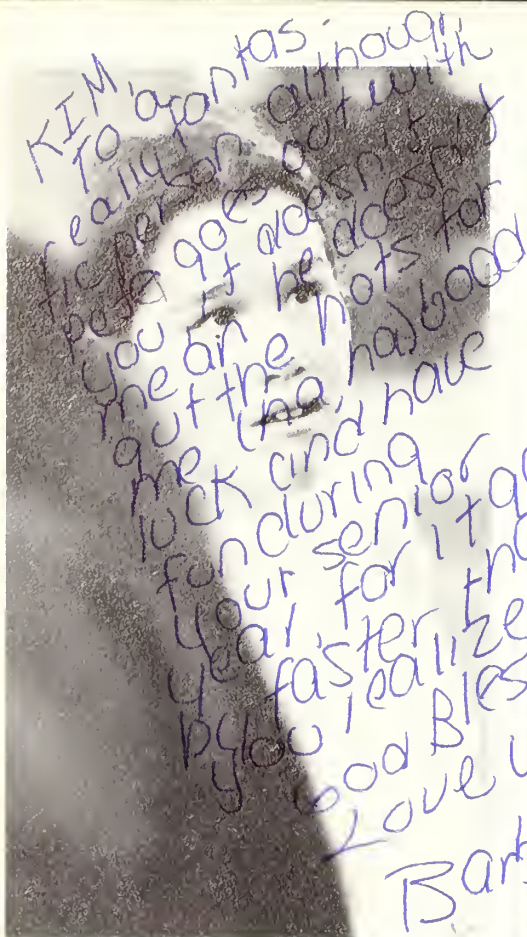 KIM,
To a fantas-
tic person although
really
Pete goes out with
you it doesn't
mean he doesn't
gut the hots for
me (ha, ha) Good
luck and have
fun during
your senior
year, for it go
by faster tha
you realize
God Bles
Love
Barb